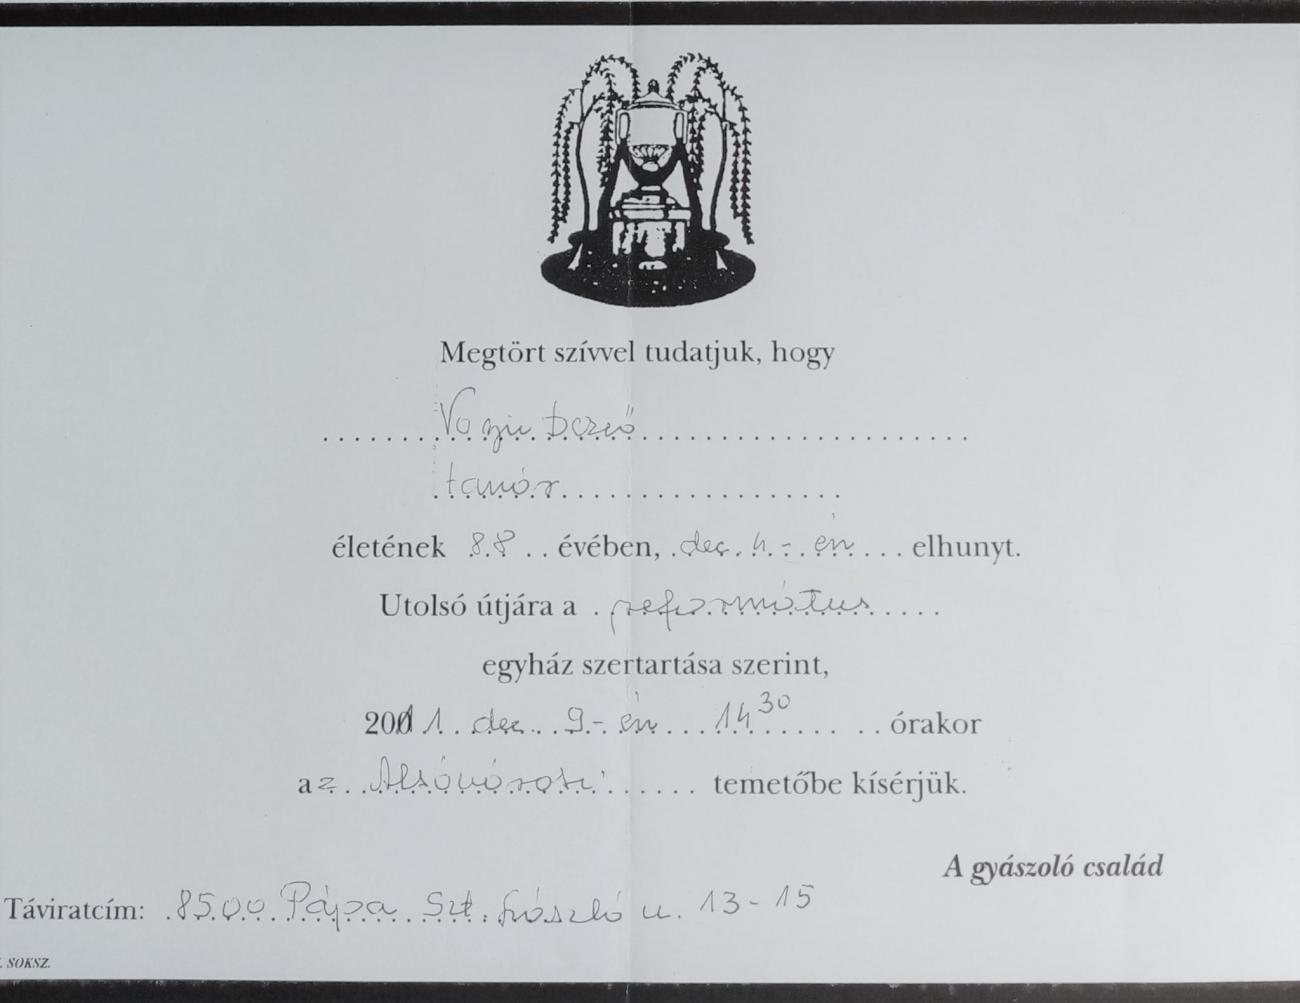 Megtört szívvel tudatjuk, hogy
Dezső
tanár
életének 88 évében, dec. 4-én elhunyt.
Utolsó útjára a református
egyház szertartása szerint,
2001. dec. 9-én 14 30 órakor
az Alsóvárosi temetőbe kísérjük.
A gyászoló család
Táviratcím: 8500 Pápa Szt. László u. 13-15
SOKSZ.